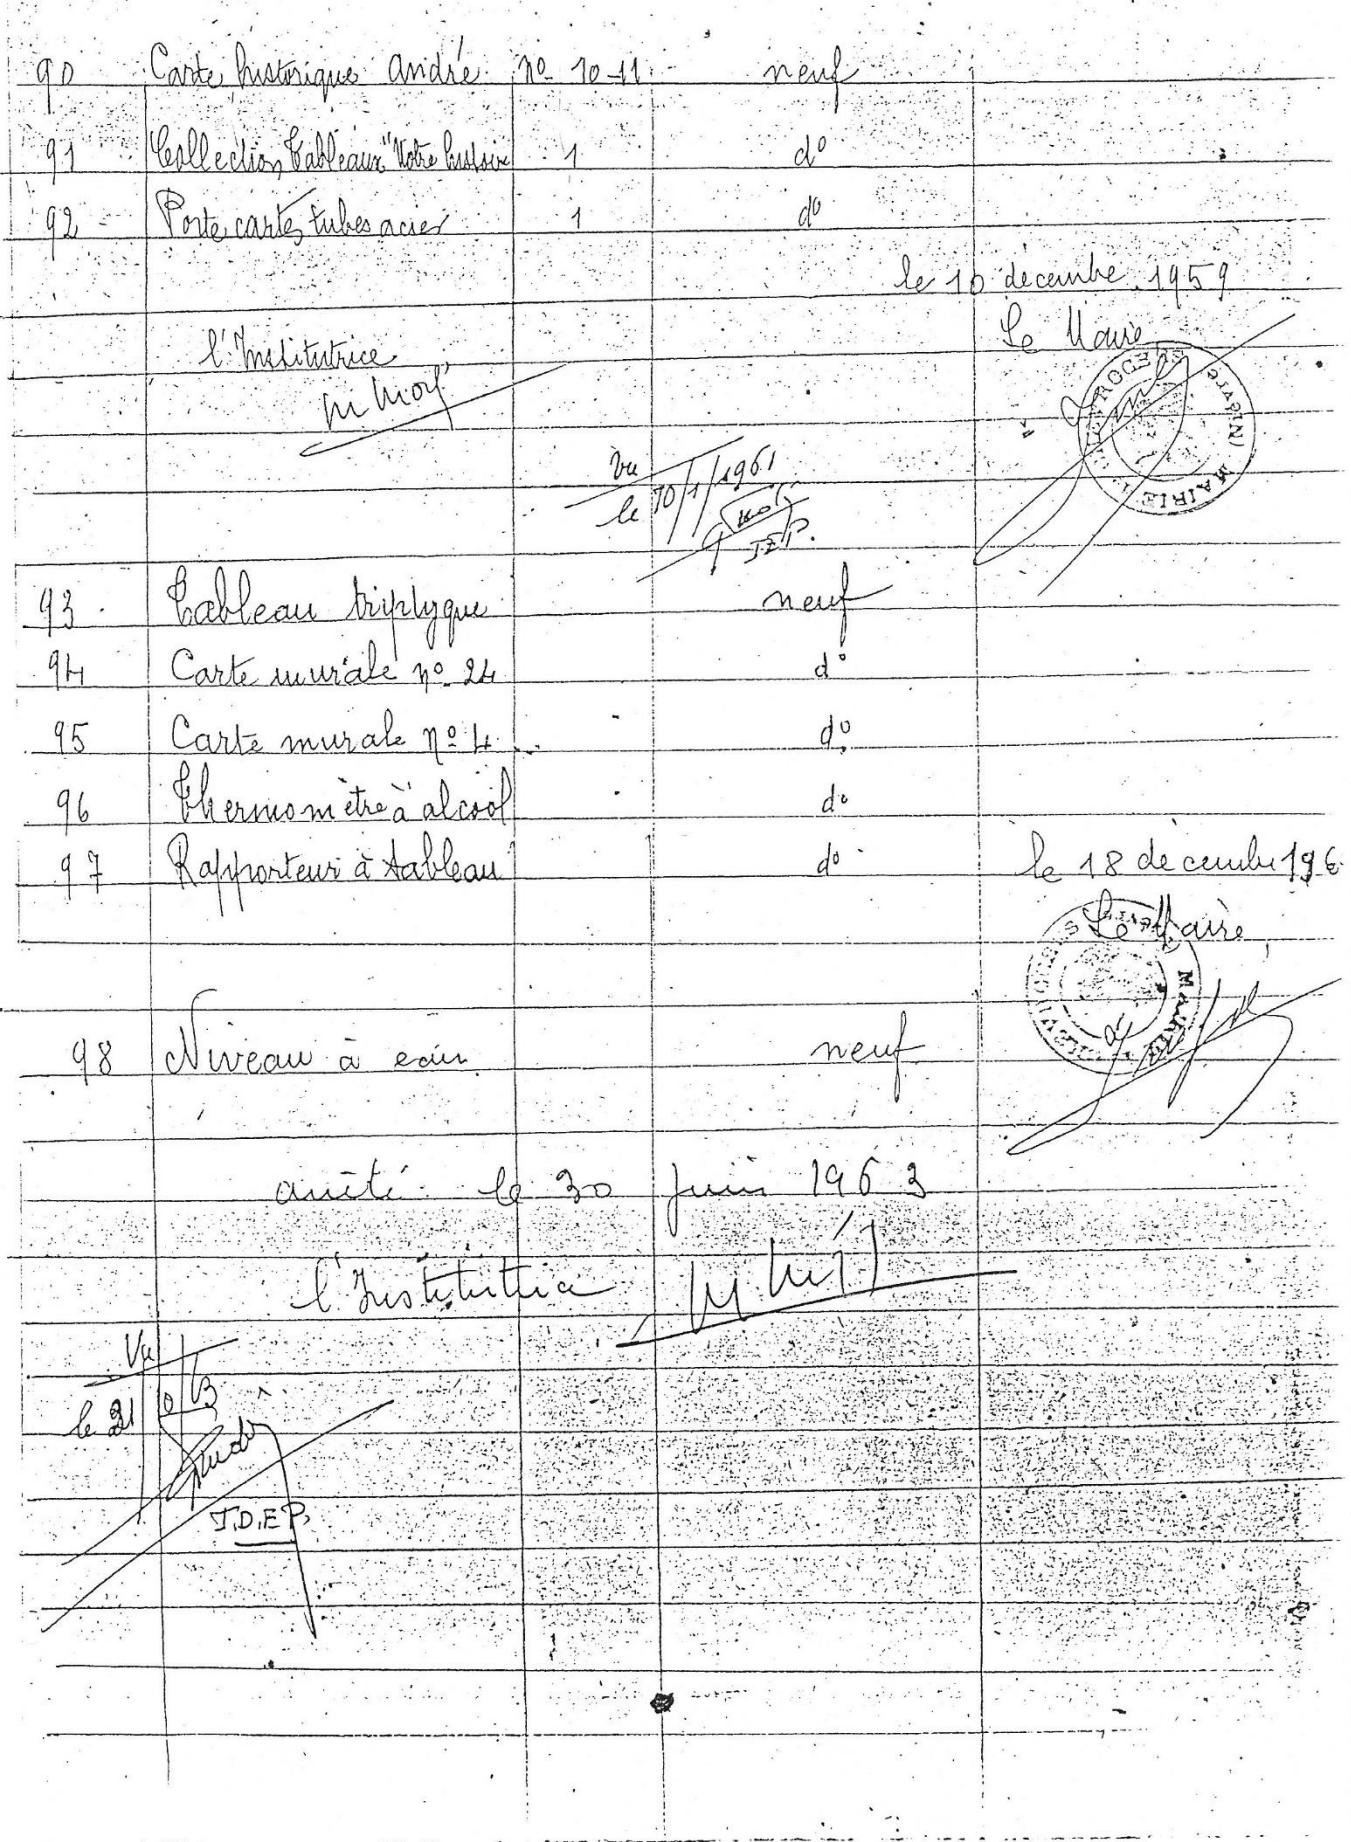 90 Carte historique André nº 10-11 neuf
91 Collection Tableaux "Notre histoire 1 dº
92 Porte cartes tubes acier 1 dº
le 10 décembre 1959
Le Maire
l'Institutrice
MAIRIE
Vu
le 10/1/1961
93 Tableau triptyque neuf
94 Carte murale nº 24 dº
95 Carte murale nº 4 dº
96 Thermomètre à alcool dº
97 Rapporteur à tableau dº le 18 décembre 196
Le Maire
MAIRIE
98 Niveau à eau neuf
arrêté le 30 juin 1963
l'Institutrice
Vu
le
I.D.E.P.